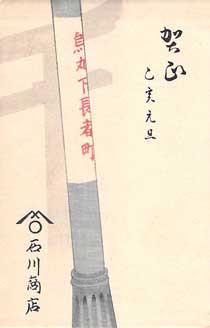 賀正
乙亥元旦
烏丸下長者町
石川商店